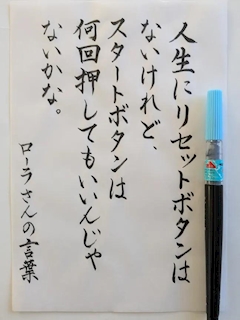 人生にリセットボタンは
ないけれど、
スタートボタンは
何回押してもいいんじゃ
ないかな。
ローラさんの言葉